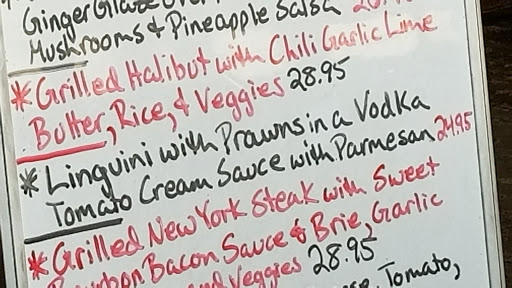 Ginger Glaze Over
Mushrooms & Pineapple Salsa
* Grilled Halibut with Chili Garlic Lime
Butter, Rice, & Veggies 28.95
* Linguini with Prawns in a Vodka
Tomato Cream Sauce with Parmesan 24.95
* Grilled New York Steak with Sweet
Bourbon Bacon Sauce & Brie, Garlic
and Veggies 28.95
Tomato,